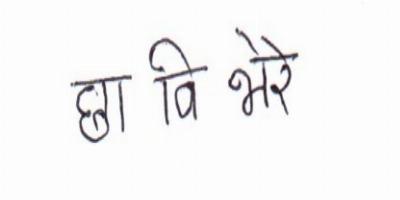 छा वि भेरे